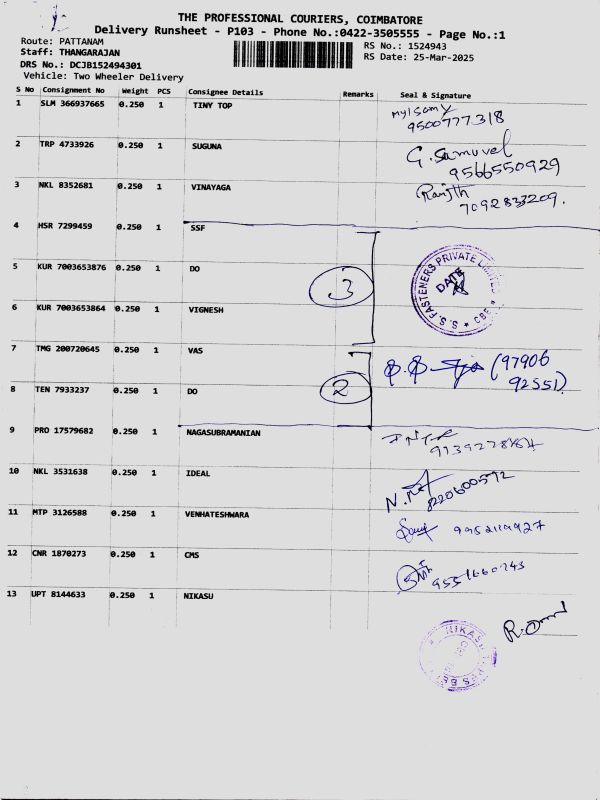 THE PROFESSIONAL COURIERS, COIMBATORE
Delivery Runsheet - P103 - Phone No.:0422-3505555 - Page No.:1
Route: PATTANAM RS No.: 1524943
Staff: THANGARAJAN RS Date: 25-Mar-2025
DRS No.: DCJB152494301
Vehicle: Two Wheeler Delivery
S No Consignment No Weight PCS Consignee Details Remarks Seal & Signature
1 SLM 366937665 0.250 1 TINY TOP
mylsamy
9500777318
2 TRP 4733926 0.250 1 SUGUNA
G. Samuvel
9566550929
3 NKL 8352681 0.250 1 VINAYAGA
Ranjith
7092833209.
4 HSR 7299459 0.250 1 SSF
5 KUR 7003653876 0.250 1 DO
3
S.S. FASTENERS PRIVATE LIMITED * CBE *
DATE
6 KUR 7003653864 0.250 1 VIGNESH
7 TMG 200720645 0.250 1 VAS
(97906
92551)
8 TEN 7933237 0.250 1 DO
2
9 PRO 17579682 0.250 1 NAGASUBRAMANIAN
10 NKL 3531638 0.250 1 IDEAL
8220600592
11 MTP 3126588 0.250 1 VENHATESHWARA
9952119927
12 CNR 1870273 0.250 1 CMS
13 UPT 8144633 0.250 1 NIKASU
NIKASU